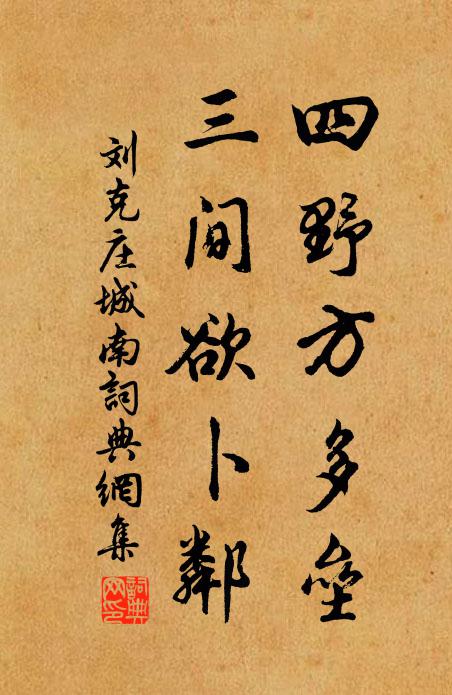 四野方多壘
三间欲卜鄰
刘克庄城南詞典網集
詞典网印